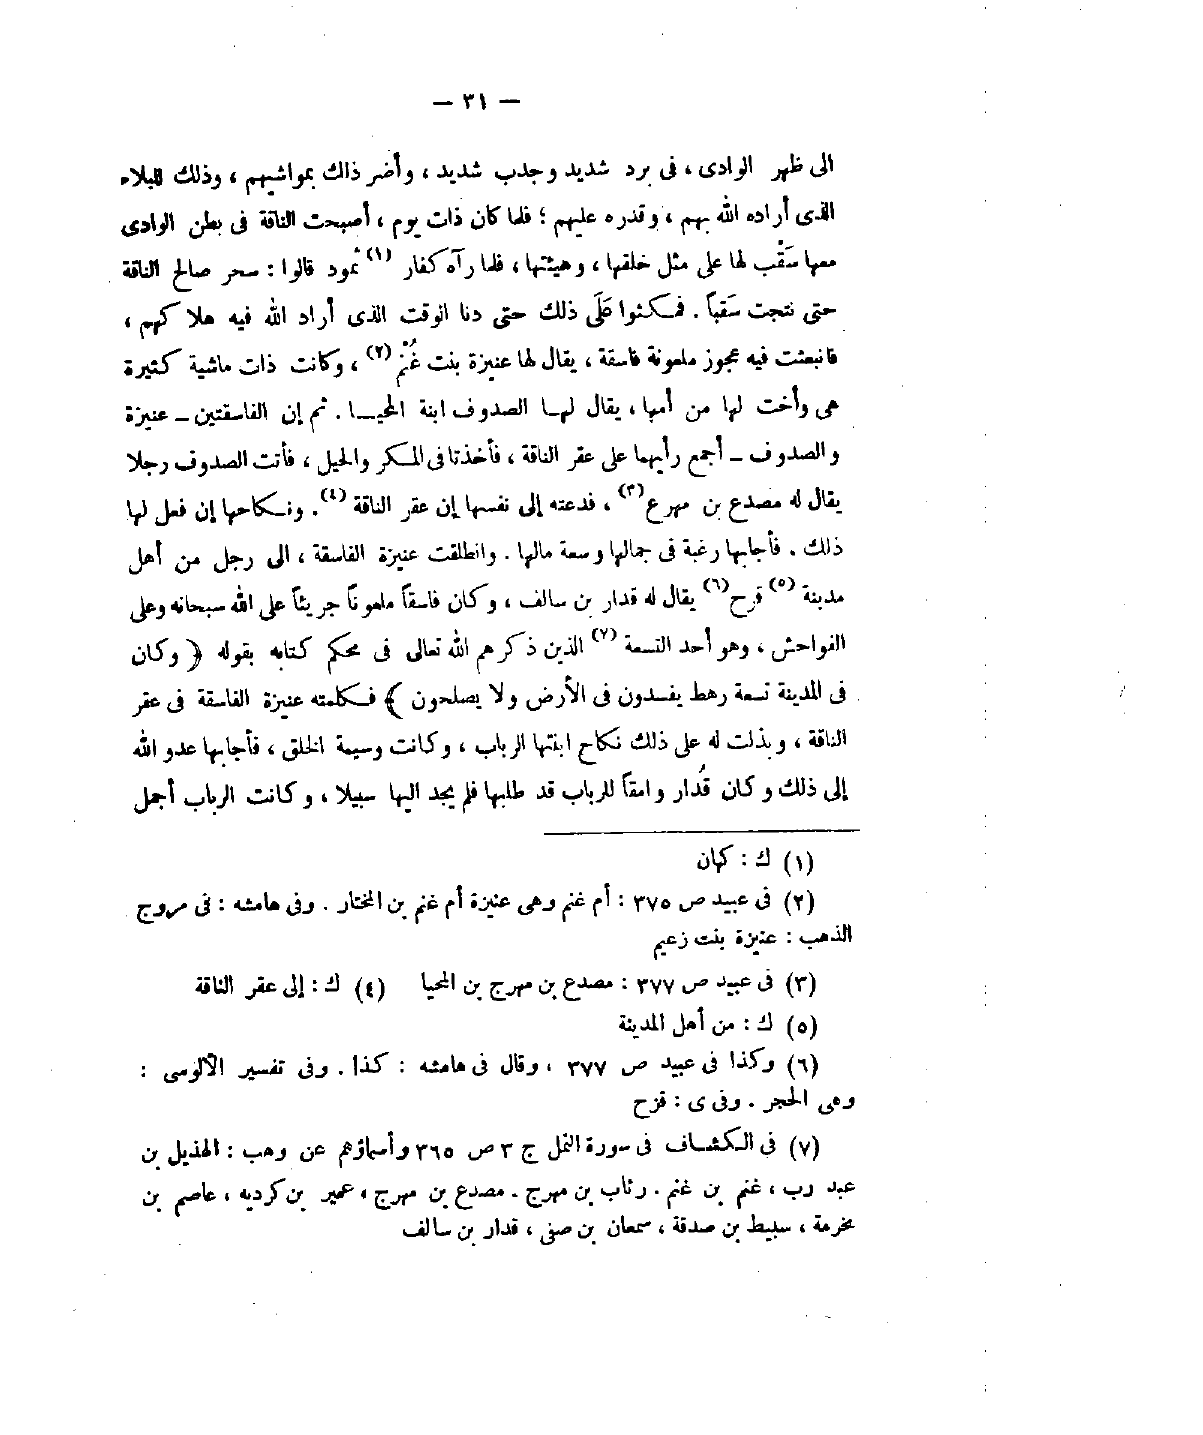 — ٣١ —
الى ظهر الوادى ، فى برد شديد وجدب شديد ، وأضر ذلك بمواشيهم ، وذلك للبلاء
الذى أراده الله بهم ، وقدره عليهم ؛ فلما كان ذات يوم ، أصبحت الناقة فى بطن الوادى
معها سَقْب لها على مثل خلقها ، وهيئتها ، فلما رآه كفار (١) ثمود قالوا : سحر صالح الناقة
حتى نتجت سَقباً . فمكثوا عَلَى ذلك حتى دنا الوقت الذى أراد الله فيه هلاكهم ،
فانبعثت فيه عجوز ملعونة فاسقة ، يقال لها عنيزة بنت غُنْم (٢) ، وكانت ذات ماشية كثيرة
هى وأخت لها من أمها ، يقال لهـا الصدوف ابنة المحيـا . ثم إن الفاسقتين ــ عنيزة
والصدوف ــ أجمع رأيهما على عقر الناقة ، فأخذتا فى المكر والحيل ، فأتت الصدوف رجلا
يقال له مصدع بن مهرع (٣) ، فدعته إلى نفسها إن عقر الناقة (٤) . ونكاحها إن فعل لها
ذلك . فأجابها رغبة فى جمالها وسعة مالها . وانطلقت عنيزة الفاسقة ، الى رجل من أهل
مدينة (٥) قرح (٦) يقال له قدار بن سالف ، وكان فاسقاً ملعوناً جريئاً على الله سبحانه وعلى
الفواحش ، وهو أحد التسعة (٧) الذين ذكرهم الله تعالى فى محكم كتابه بقوله ﴿ وكان
فى المدينة تسعة رهط يفسدون فى الأرض ولا يصلحون ﴾ فكلمته عنيزة الفاسقة فى عقر
الناقة ، وبذلت له على ذلك نكاح ابنتها الرباب ، وكانت وسيمة الخلق ، فأجابها عدو الله
إلى ذلك وكان قُدار وامقاً للرباب قد طلبها فلم يجد اليها سبيلا ، وكانت الرباب أجمل
(١) ك : كهان
(٢) فى عبيد ص ٣٧٥ : أم غنم وهى عنيزة أم غنم بن المختار . وفى هامشه : فى مروج
الذهب : عنيزة بنت زعيم
(٣) فى عبيد ص ٣٧٧ : مصدع بن مهرج بن المحيا (٤) ك : إلى عقر الناقة
(٥) ك : من أهل المدينة
(٦) وكذا فى عبيد ص ٣٧٧ ، وقال فى هامشه : كذا . وفى تفسير الآلوسى :
وهى الحجر . وفى ى : قزح
(٧) فى الكشاف فى سورة النمل ج ٣ ص ٣٦٥ وأسماؤهم عن وهب : الهذيل بن
عبد رب ، غنم بن غنم . رئاب بن مهرج . مصدع بن مهرج ، عمير بن كرديه ، عاصم بن
مخرمة ، سبيط بن صدقة ، سمعان بن صفى ، قدار بن سالف